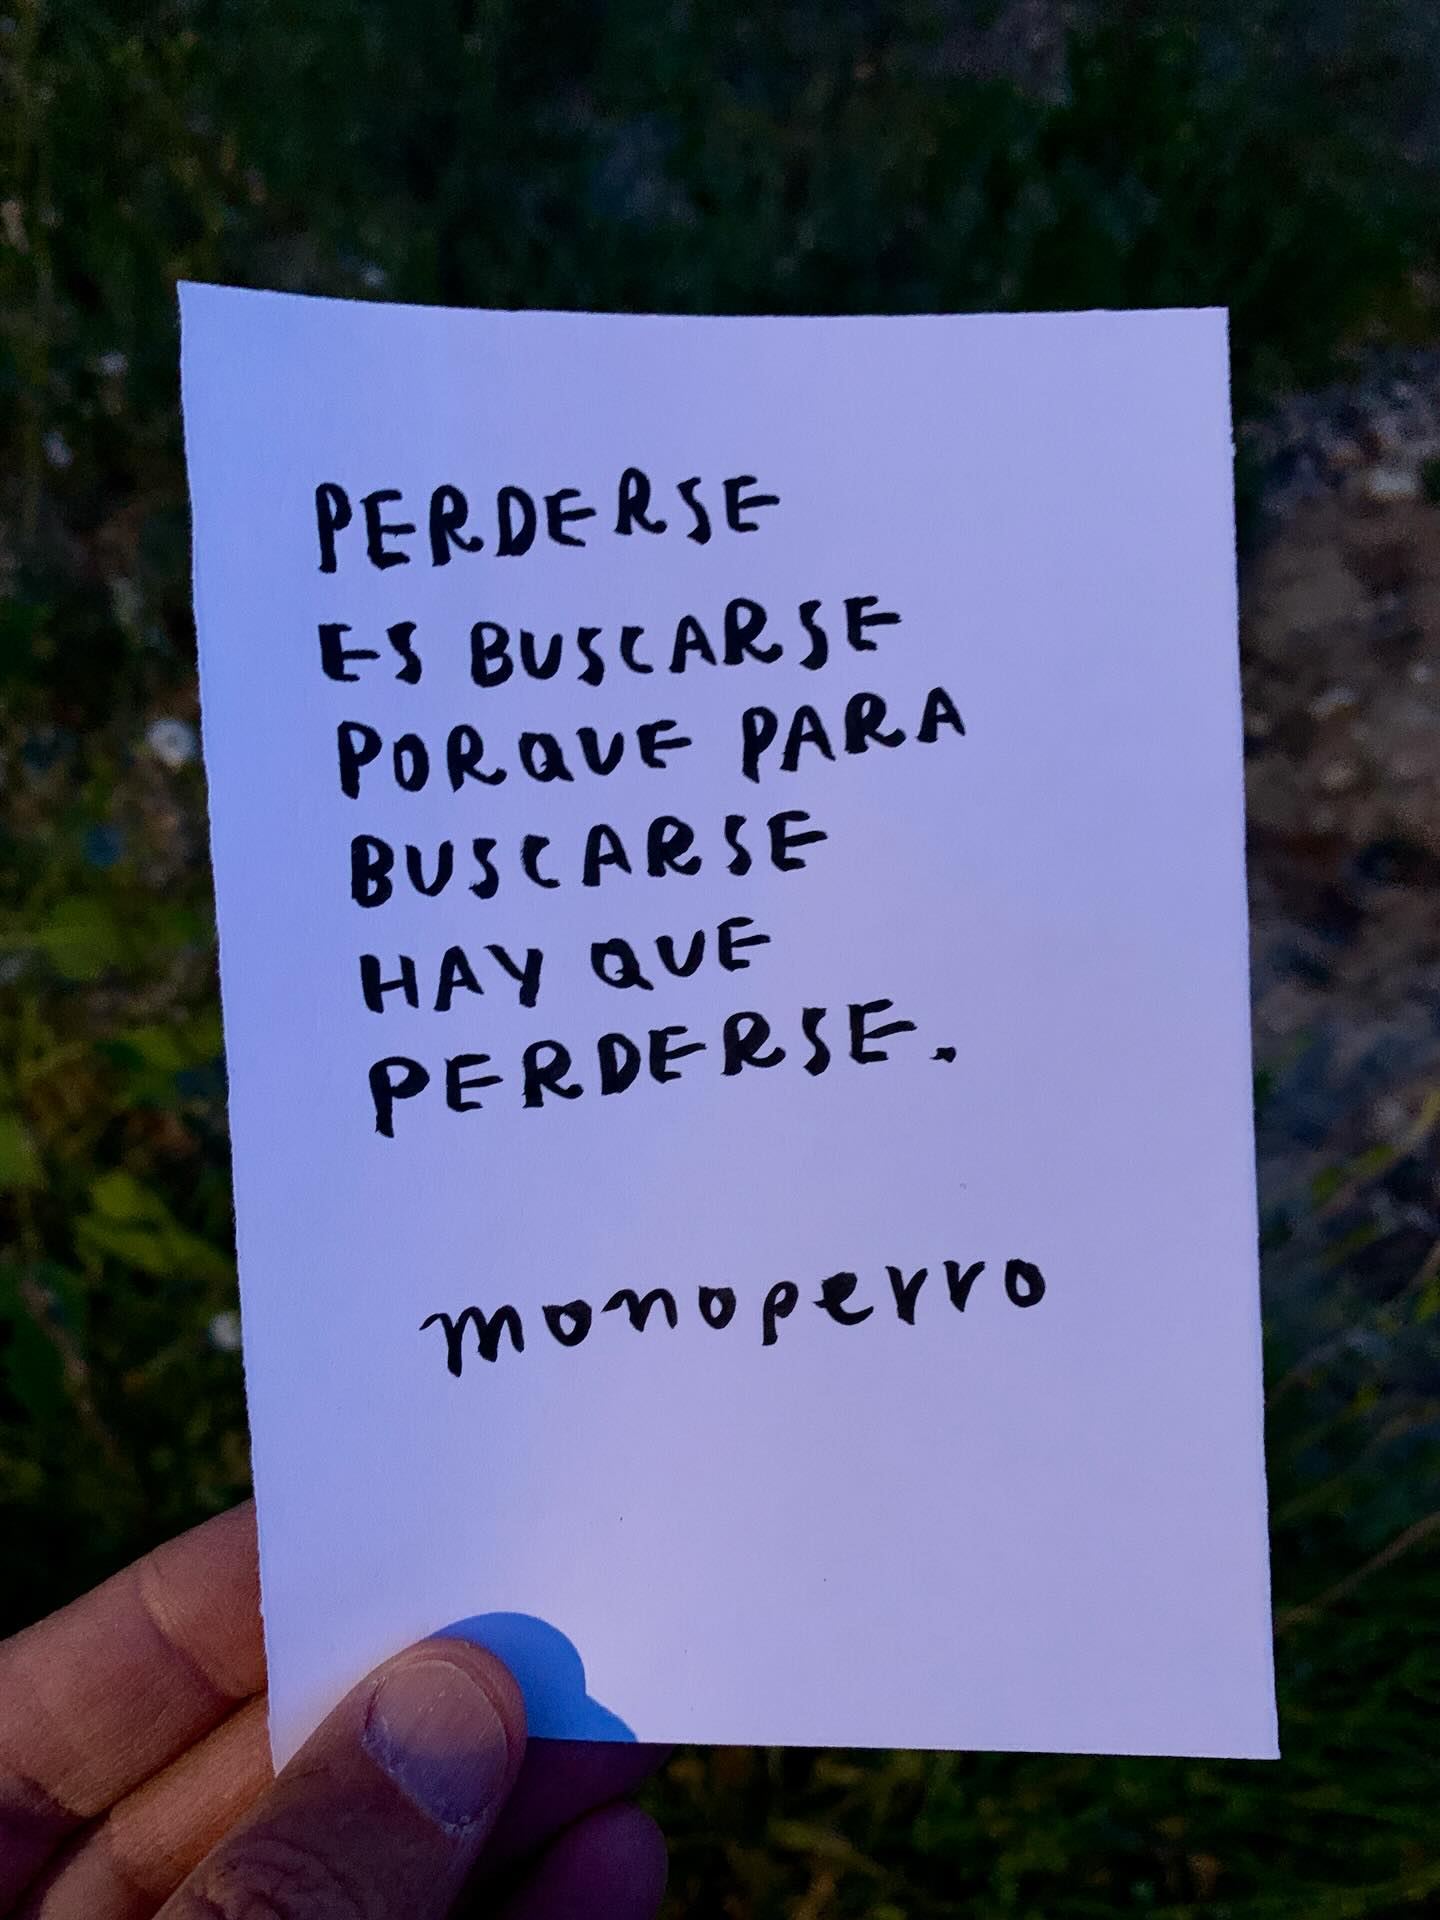 PERDERSE
ES BUSCARSE
PORQUE PARA
BUSCARSE
HAY QUE
PERDERSE.
monoperro